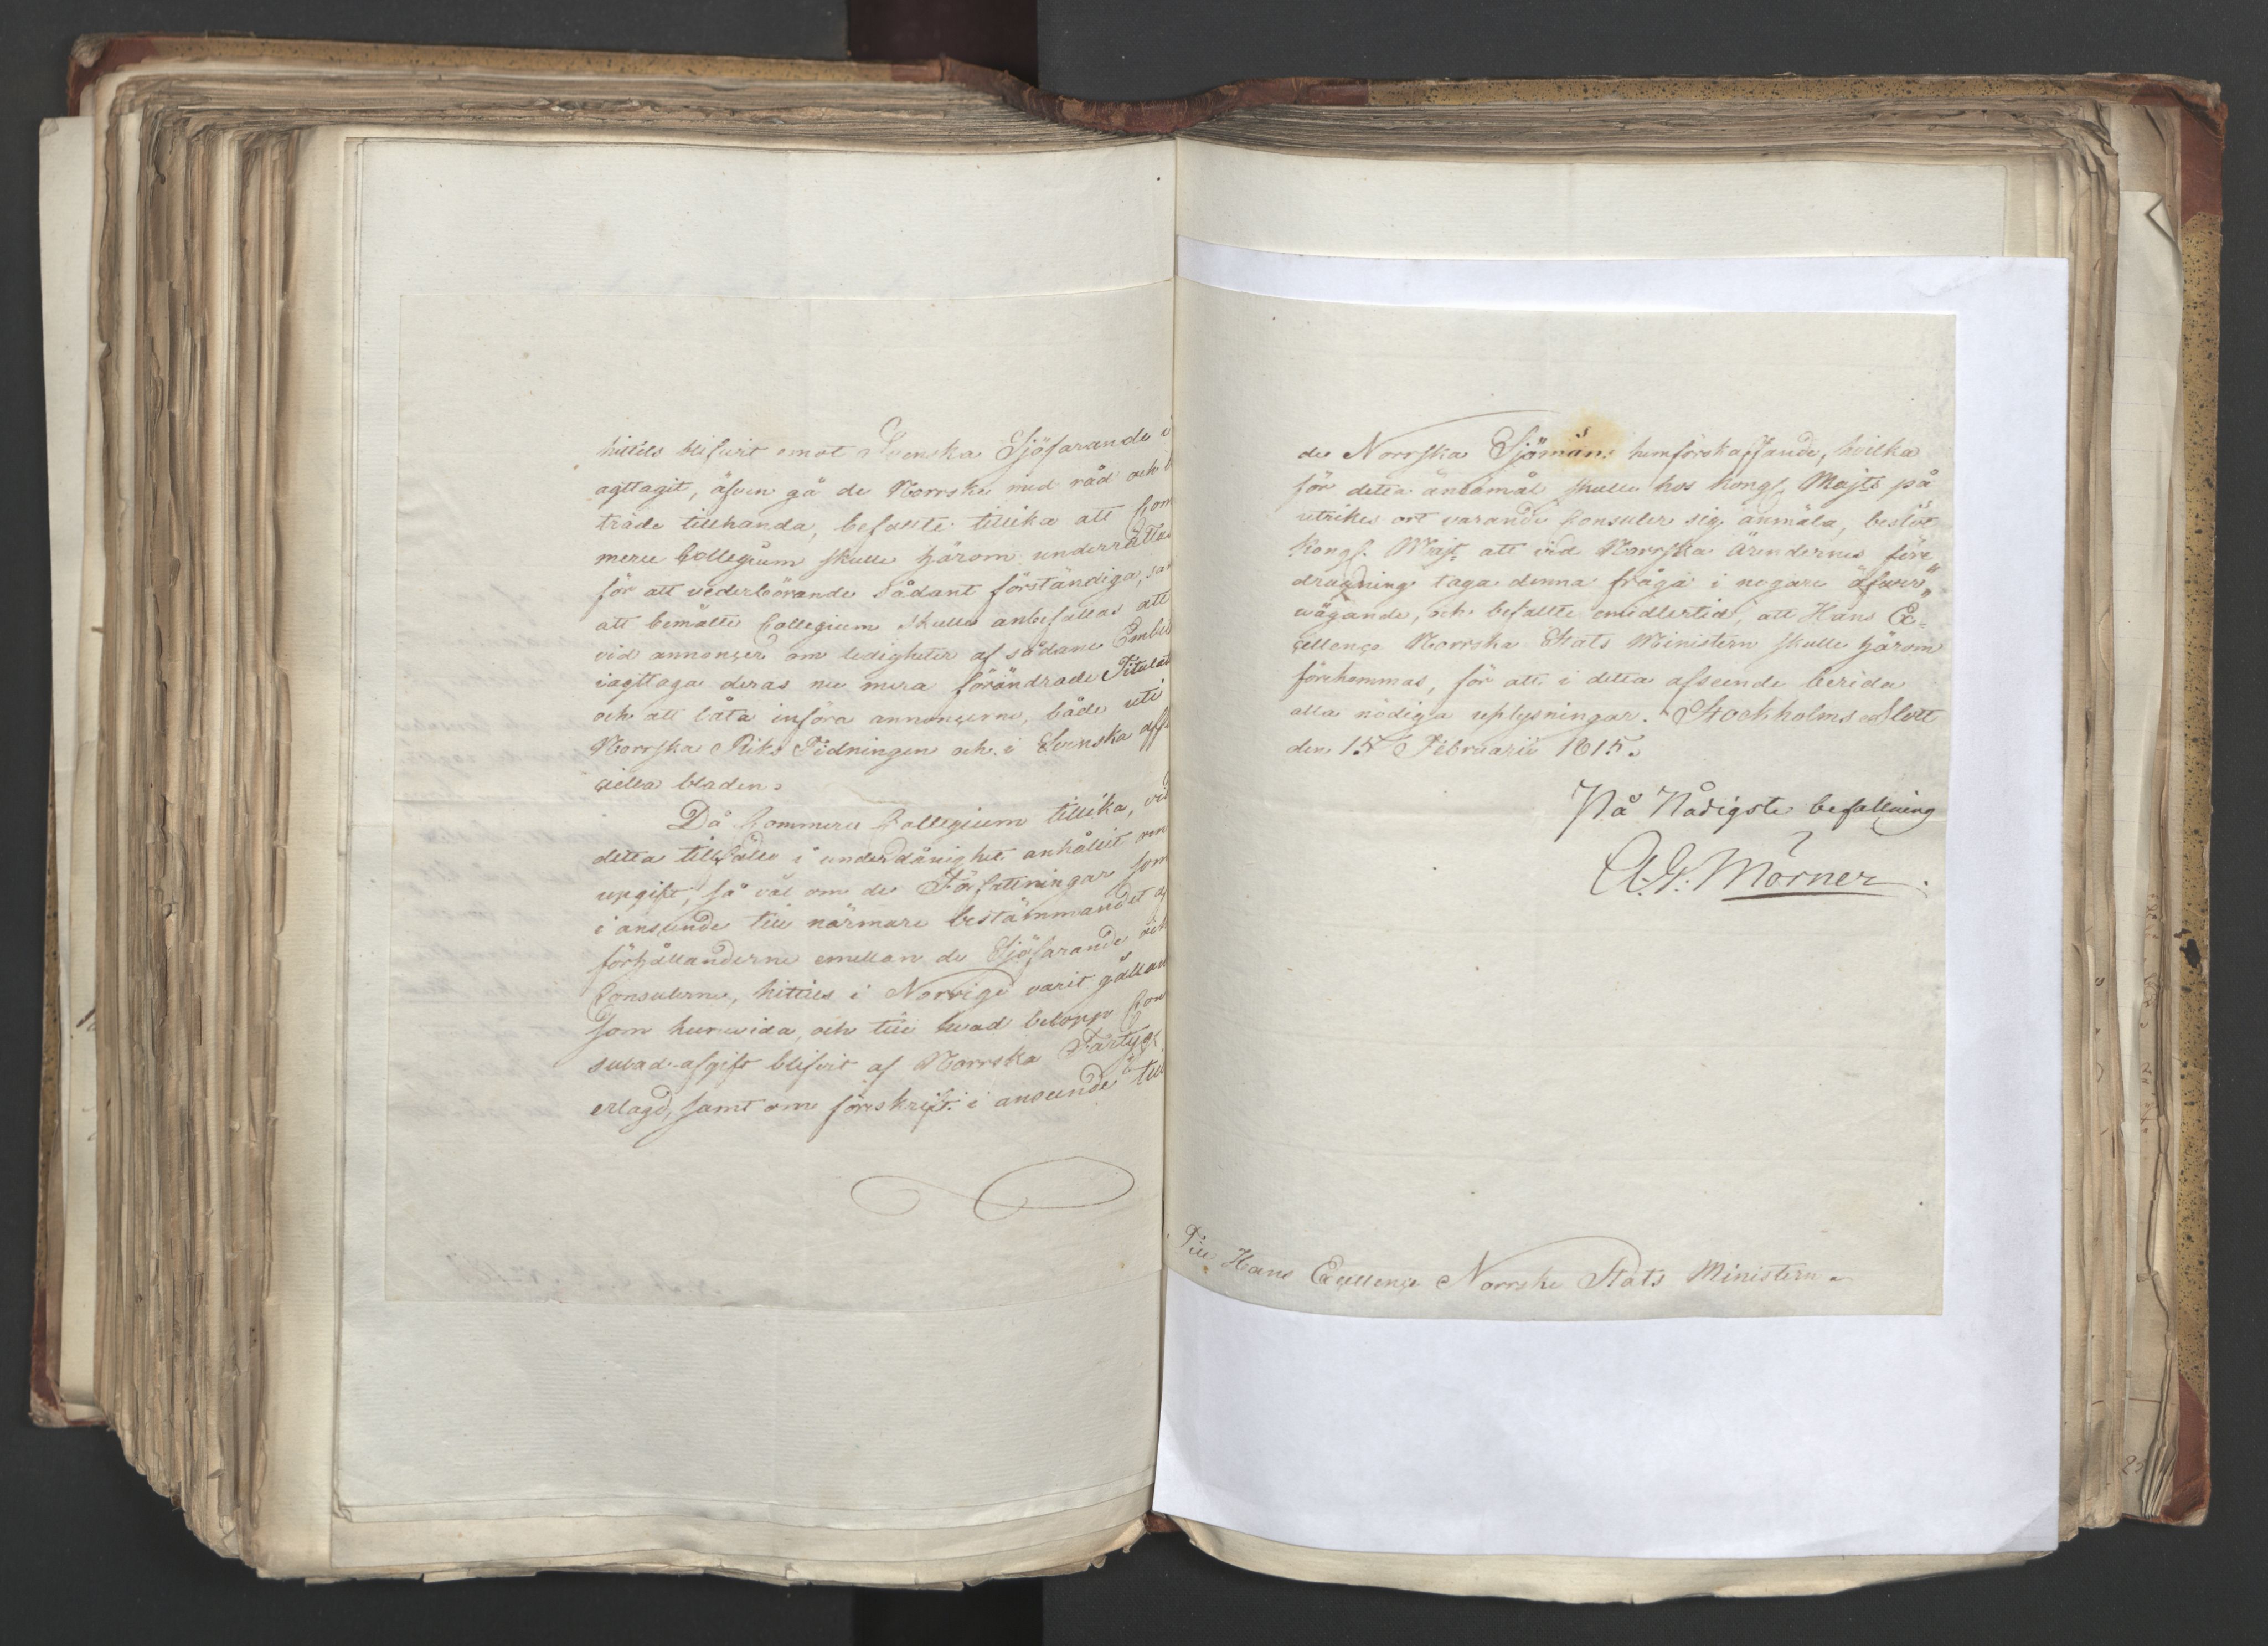 hittils blifvit emot Svenska Sjöfarande i
agttagit, äfven gå de Norrska med råd och b
träde tillhanda, befallte tillika att Com
merce Collegium skulle härom underrättas
för att vederbörande sådant förständiga, sa
att bemälte Collegium skulle anbefallas att
vid annonçer om ledigheter af sådane Embe
iagttaga deras nu mera förändrade Titulat
och att låta införa annonçerne, både uti
Norrska Riks Tidningen och i Svenska offi
ciella bladen.
Då Commerce Collegium tillika, vid
detta tillfälle i underdånighet anhållit om
upgift, så väl om de Författningar som
i anseende till närmare bestämmandet af
förhållanderne emellan de Sjöfarande och
Consulerne, hittils i Norrige varit gällan
som huruvida, och till hvad belopp Con
sulad-afgift blifvit af Norrska Fartyg
erlagd, samt om föreskrift i anseende till
de Norrska Sjömäns hemförskaffande, hvilka
för detta ändamål skulle hos Kongl. Majts på
utrikes ort varande Consuler sig anmäla, beslöt
Kongl. Majt att vid Norrska Ärendernes före
dragning taga denna fråga i nogare öfver„
vägande, och befallte emidlertid, att Hans Ex-
cellençe Norrska Stats Ministern skulle härom
förekommas, för att i detta afseende bereda
alla nödiga uplysningar. Stockholms Slott
den 15 Februarii 1815.
På Nådigste befallning
A. G. Mörner.
Till Hans Excellençe Norrske Stats Ministern